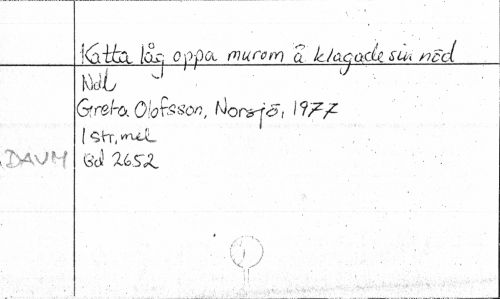 Katta låg oppa murom å klagade sin nöd
Ndl
Greta Olofsson, Norsjö, 1977
1 str, mel
DAUM Gd 2652